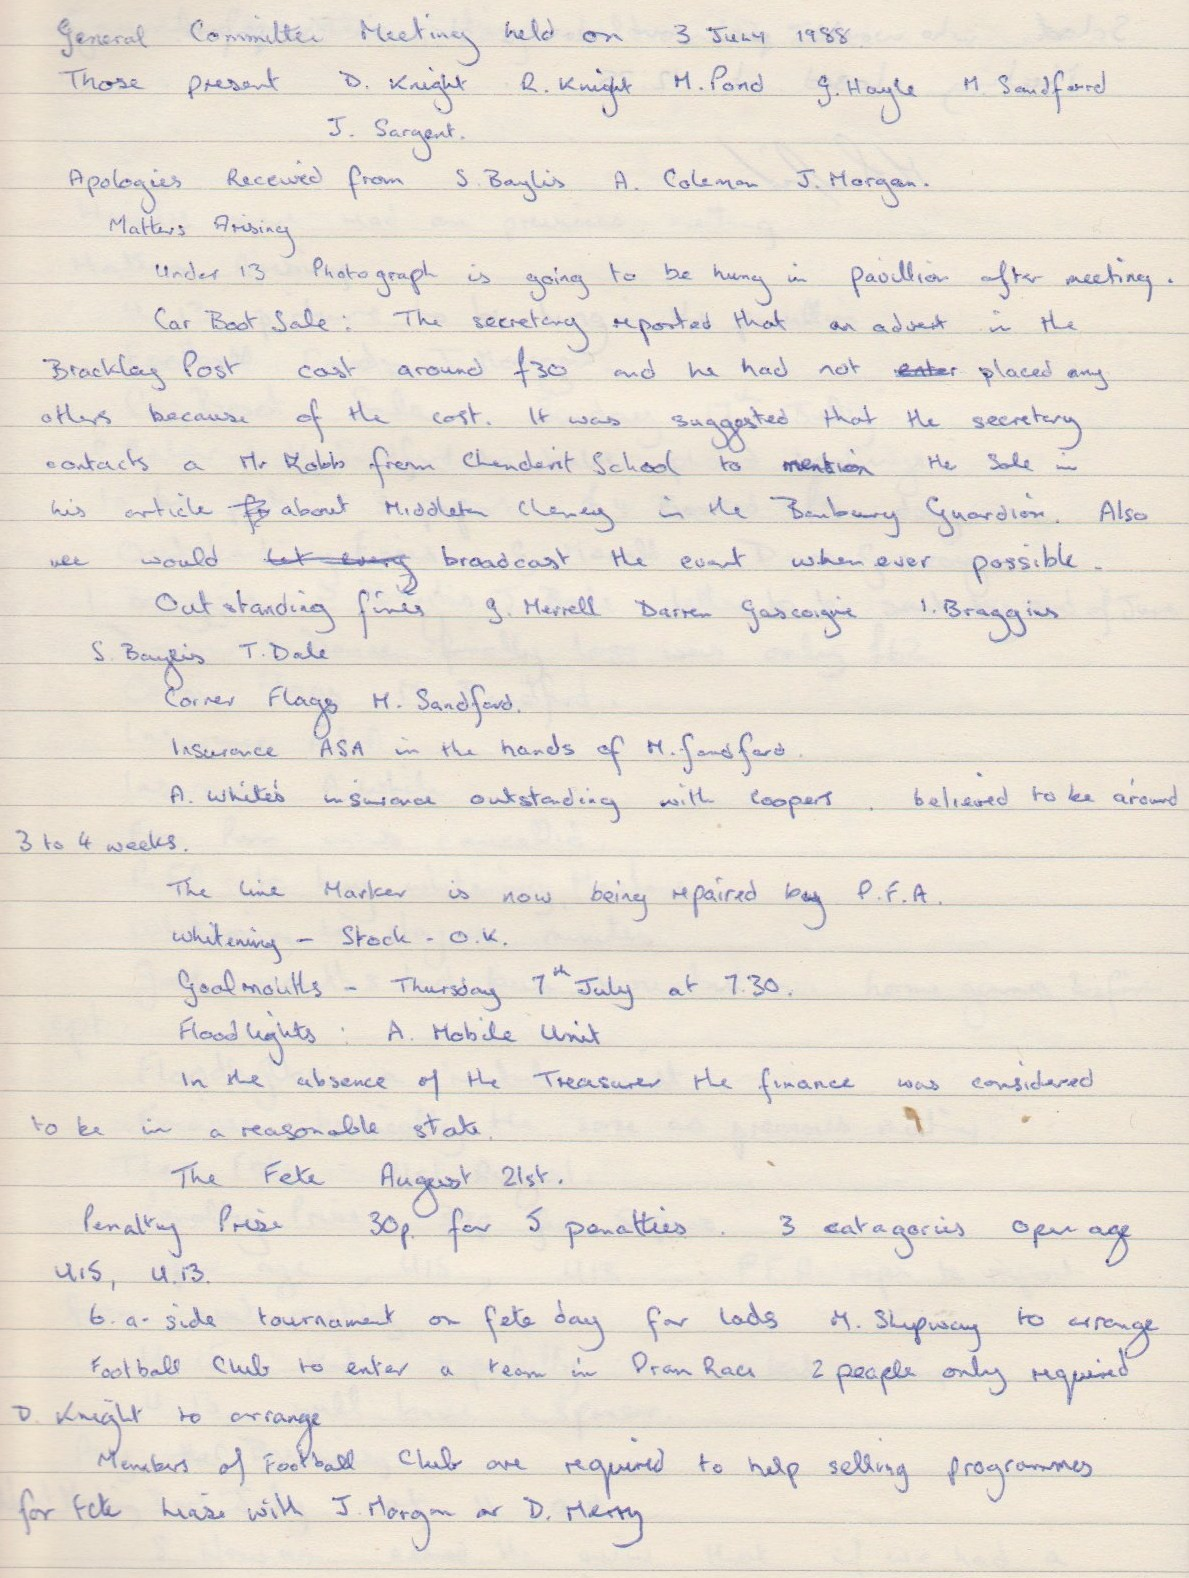 General Committee Meeting held on 3 July 1988.
Those present D. Knight R. Knight M. Pond G. Hoyle M. Sandford
J. Sargent.
Apologies Received from S. Baylis A. Coleman J. Morgan.
Matters Arising
Under 13 Photograph is going to be hung in pavillion after meeting.
Car Boot Sale: The secretary reported that an advert in the
Brackley Post cost around £30 and he had not enter placed any
others because of the cost. It was suggested that the secretary
contacts a Mr Robb from Chenderit School to mention the Sale in
his article about Middleton Cheney in the Banbury Guardian. Also
we would let every broadcast the event when ever possible.
Out standing fines G. Merrell Darren Gascoigne I. Braggins
S. Baylis T. Dale
Corner Flags M. Sandford.
Insurance ASA in the hands of M. Sandford.
A. White's insurance outstanding with Coopers. believed to be around
3 to 4 weeks.
The line Marker is now being repaired by P.F.A.
Whitening - Stock - O.K.
Goalmouths - Thursday 7th July at 7.30.
Floodlights: A. Mobile Unit
In the absence of the Treasurer the finance was considered
to be in a reasonable state.
The Fete August 21st.
Penalty Prize 30p. for 5 penalties. 3 catagories open age
U15, U.13.
6. a- side tournament on fete day for lads M. Shipway to arrange
Football Club to enter a team in Pram Race 2 people only required
D. Knight to arrange
Members of Football Club are required to help selling programmes
for Fete liase with J. Morgan or D. Merry